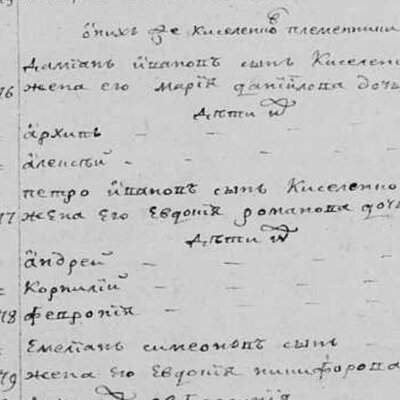 оныхъ же Киселенковъ племенники
Даміанъ Ивановъ сынъ Киселенко
76 жена его Марія Даніилова дочь
дѣти ихъ
Архипъ
Алексѣй
петро Ивановъ сынъ Киселенко
77 жена его Евдокія романова дочь
Дѣти ихъ
Андрей
Корнилій
78 Феѵронія
Емеліанъ симеоновъ сынъ
79 жена его Евдокія никифорова